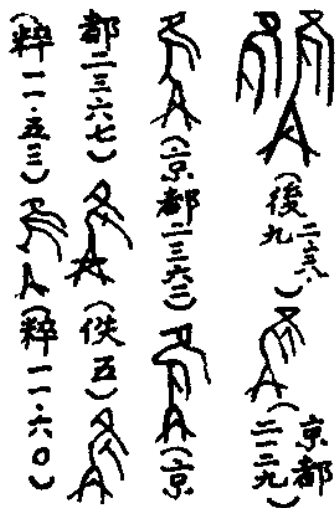 （後二·三六·九）（京都二一二九）
（京都二三六二）（京
都二三六七）（佚五）
（粹一一·五三）（粹一一·六〇）